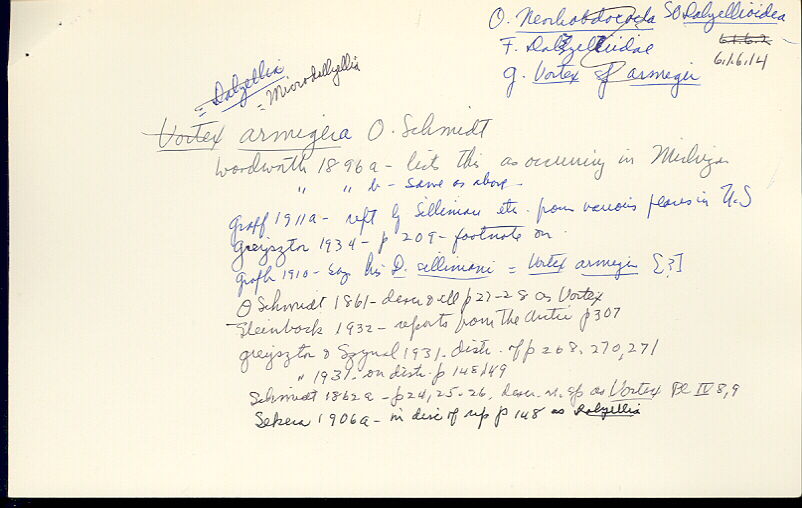 O. Neorhabdocoela SO Dalyellioidea
F. Dalyelliidae 6.1.6.2
6.1.6.14
g. Vortex armiger
= Dalyellia
= Microdalyellia
Vortex armigera O. Schmidt
Woodworth 1896a - lists this as occurring in Michigan
" " b - same as above -
Graff 1911a - reft by Silliman etc. from various places in U.S
Gieysztor 1934 - p 209 - footnote on.
Graff 1910 - Say his D. sillimani = Vortex armiger [?]
O Schmidt 1861 - descr & ill p 27-28 as Vortex
Steinbock 1932 - reports from the Arctic p 307
Gieysztor & Szynal 1931. distr. of p 268. 270, 271
" 1931. on distr. p 148, 149
Schmidt 1862a - p 24, 25-26, descr. n. sp as Vortex Pl IV 8,9
Sekera 1906a - in disc of rep p 148 as Dalyellia